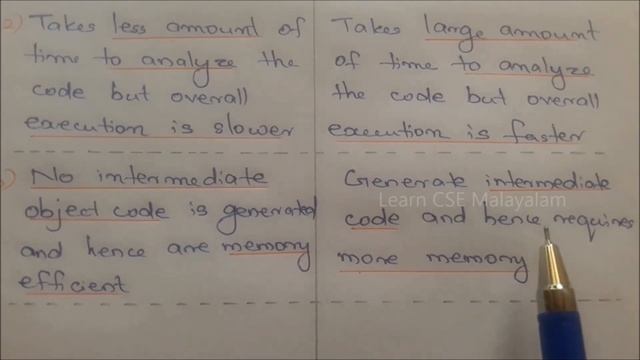 2) Takes less amount of
time to analyze the
code but overall
execution is slower
Takes large amount
of time to analyze
the code but overall
execution is faster
) No intermediate
object code is generated
and hence are memory
efficient
Generate intermediate
code and hence requires
more memory
Learn CSE Malayalam